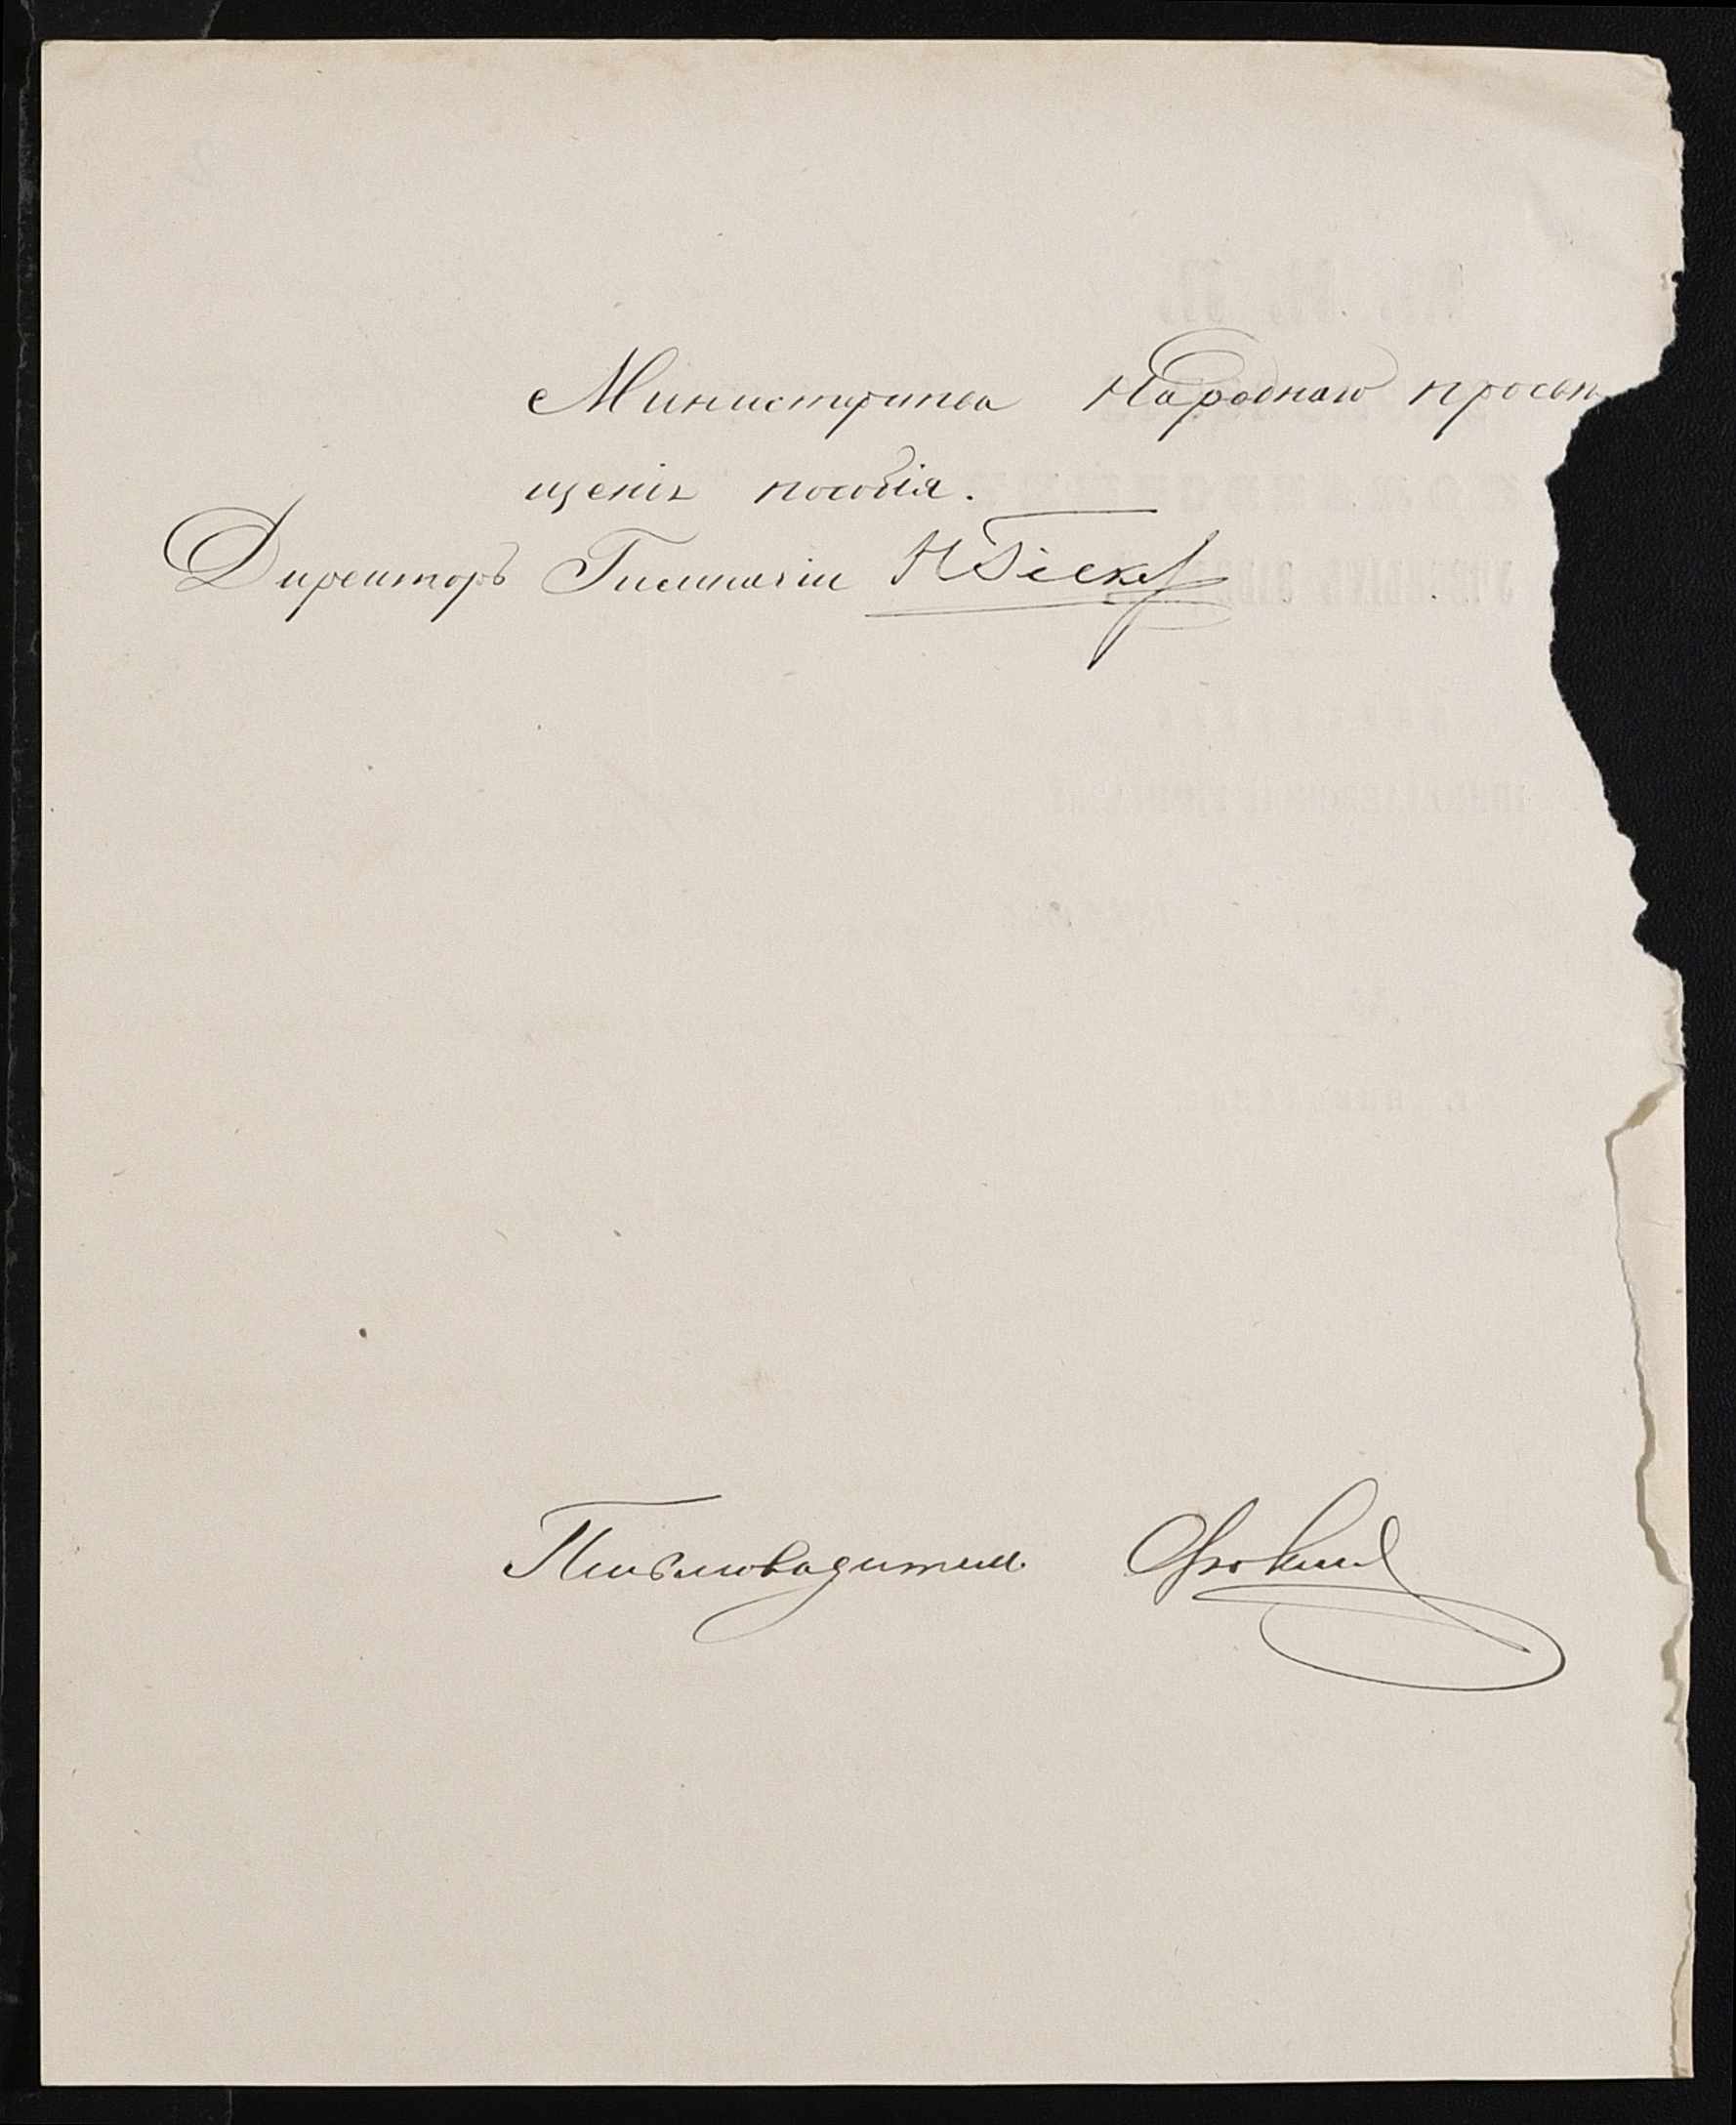 Министерства Народнаго просвѣ
щенія пособія.
Директоръ Гимназіи
Письмоводитель